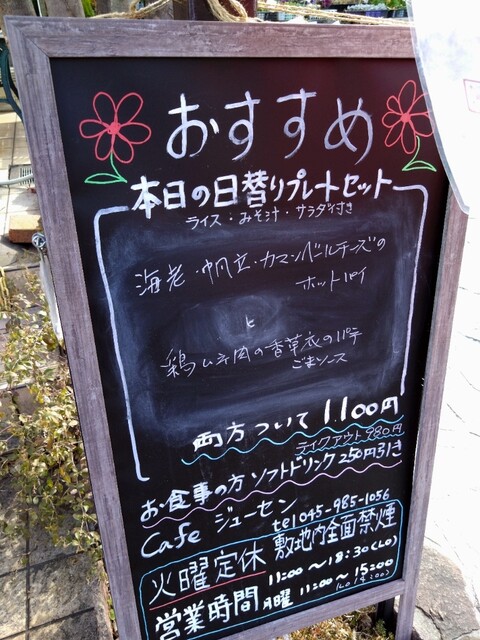 おすすめ
本日の日替りプレートセット
ライス・みそ汁・サラダ付き
海老・帆立・カマンベールチーズの
ホットパイ
と
鶏ムネ肉の香草衣のソテ
ごまソース
両方ついて 1100円
テイクアウト 980円
お食事の方 ソフトドリンク 250円引き
Cafe ジューセン
tel 045-985-1056
火曜定休 敷地内全面禁煙
営業時間 11:00～18:30(LO)
月曜 11:00～15:00
(LO 14:00)